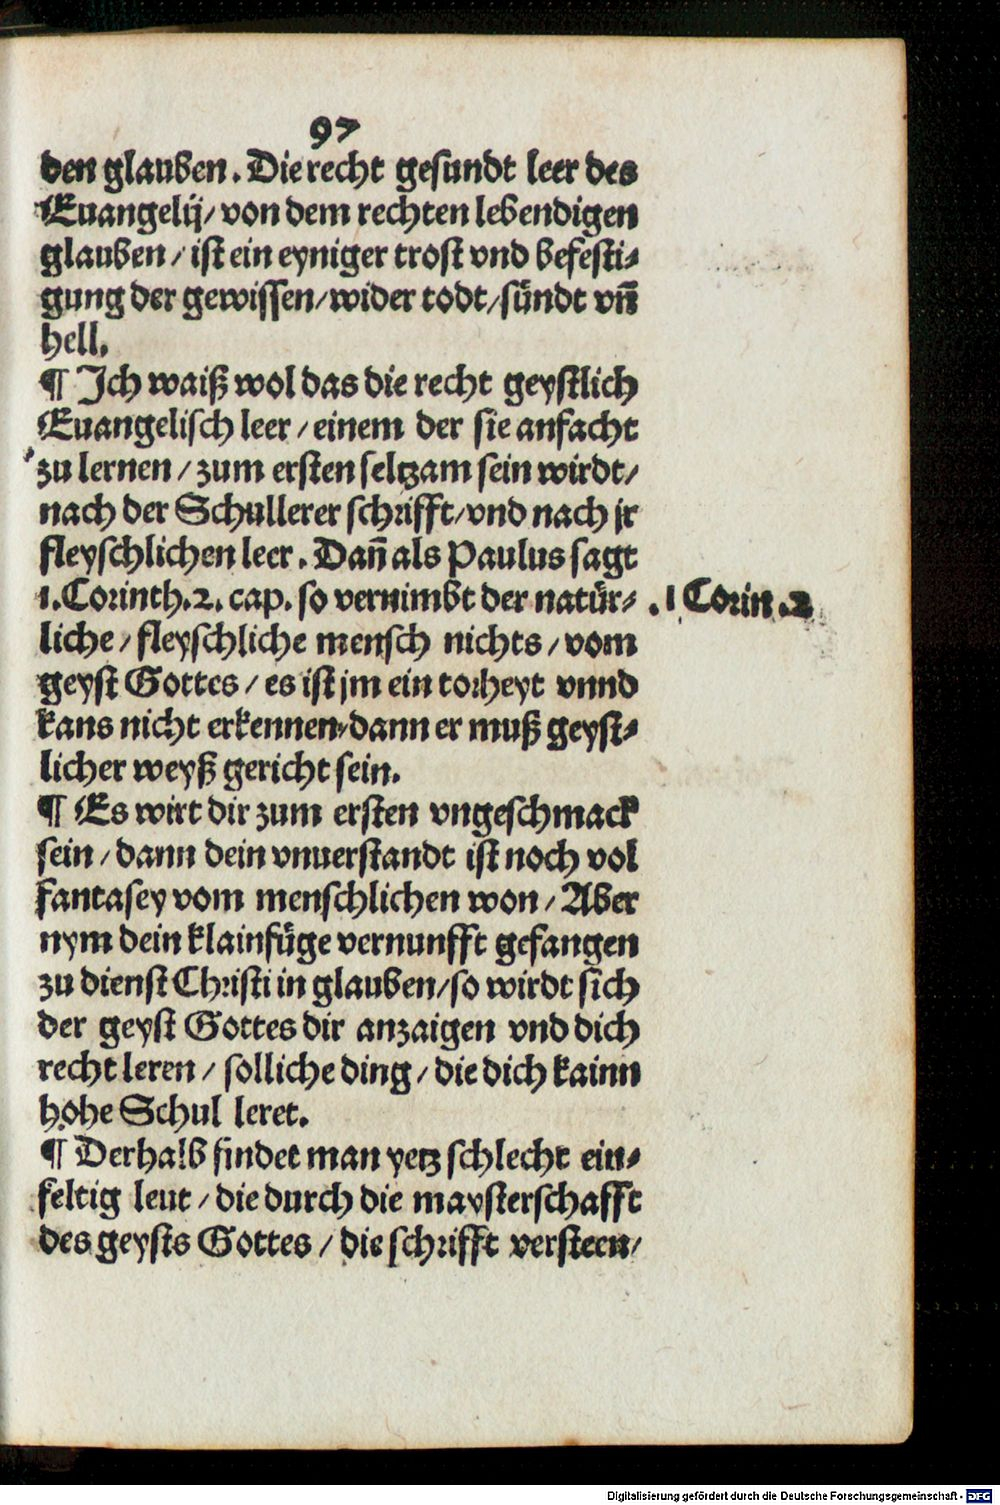 97
den glauben. Die recht gesundt leer des
Euangelij/ von dem rechten lebendigen
glauben/ ist ein eyniger trost vnd befesti⸗
gung der gewissen/ wider todt/ sündt vn̄
hell.
¶ Ich waiß wol das die recht geystlich
Euangelisch leer/ einem der sie anfacht
zu lernen/ zum ersten seltzam sein wirdt/
nach der Schullerer schrifft/ vnd nach jr
fleyschlichen leer. Dan̄ als Paulus sagt
1. Corinth. 2. cap. so vernimbt der natür⸗
.1 Corin .2
liche/ fleyschliche mensch nichts/ vom
geyst Gottes/ es ist jm ein torheyt vnnd
kans nicht erkennen/ dann er muß geyst⸗
licher weyß gericht sein.
¶ Es wirt dir zum ersten vngeschmack
sein/ dann dein vnuerstandt ist noch vol
fantasey vom menschlichen won/ Aber
nym dein klainfüge vernunfft gefangen
zu dienst Christi in glauben/ so wirdt sich
der geyst Gottes dir anzaigen vnd dich
recht leren/ solliche ding/ die dich kainn
hohe Schul leret.
¶ Derhalb findet man yetz schlecht ein⸗
feltig leut/ die durch die maysterschafft
des geysts Gottes/ die schrifft versteen/
Digitalisierung gefördert durch die Deutsche Forschungsgemeinschaft - DFG